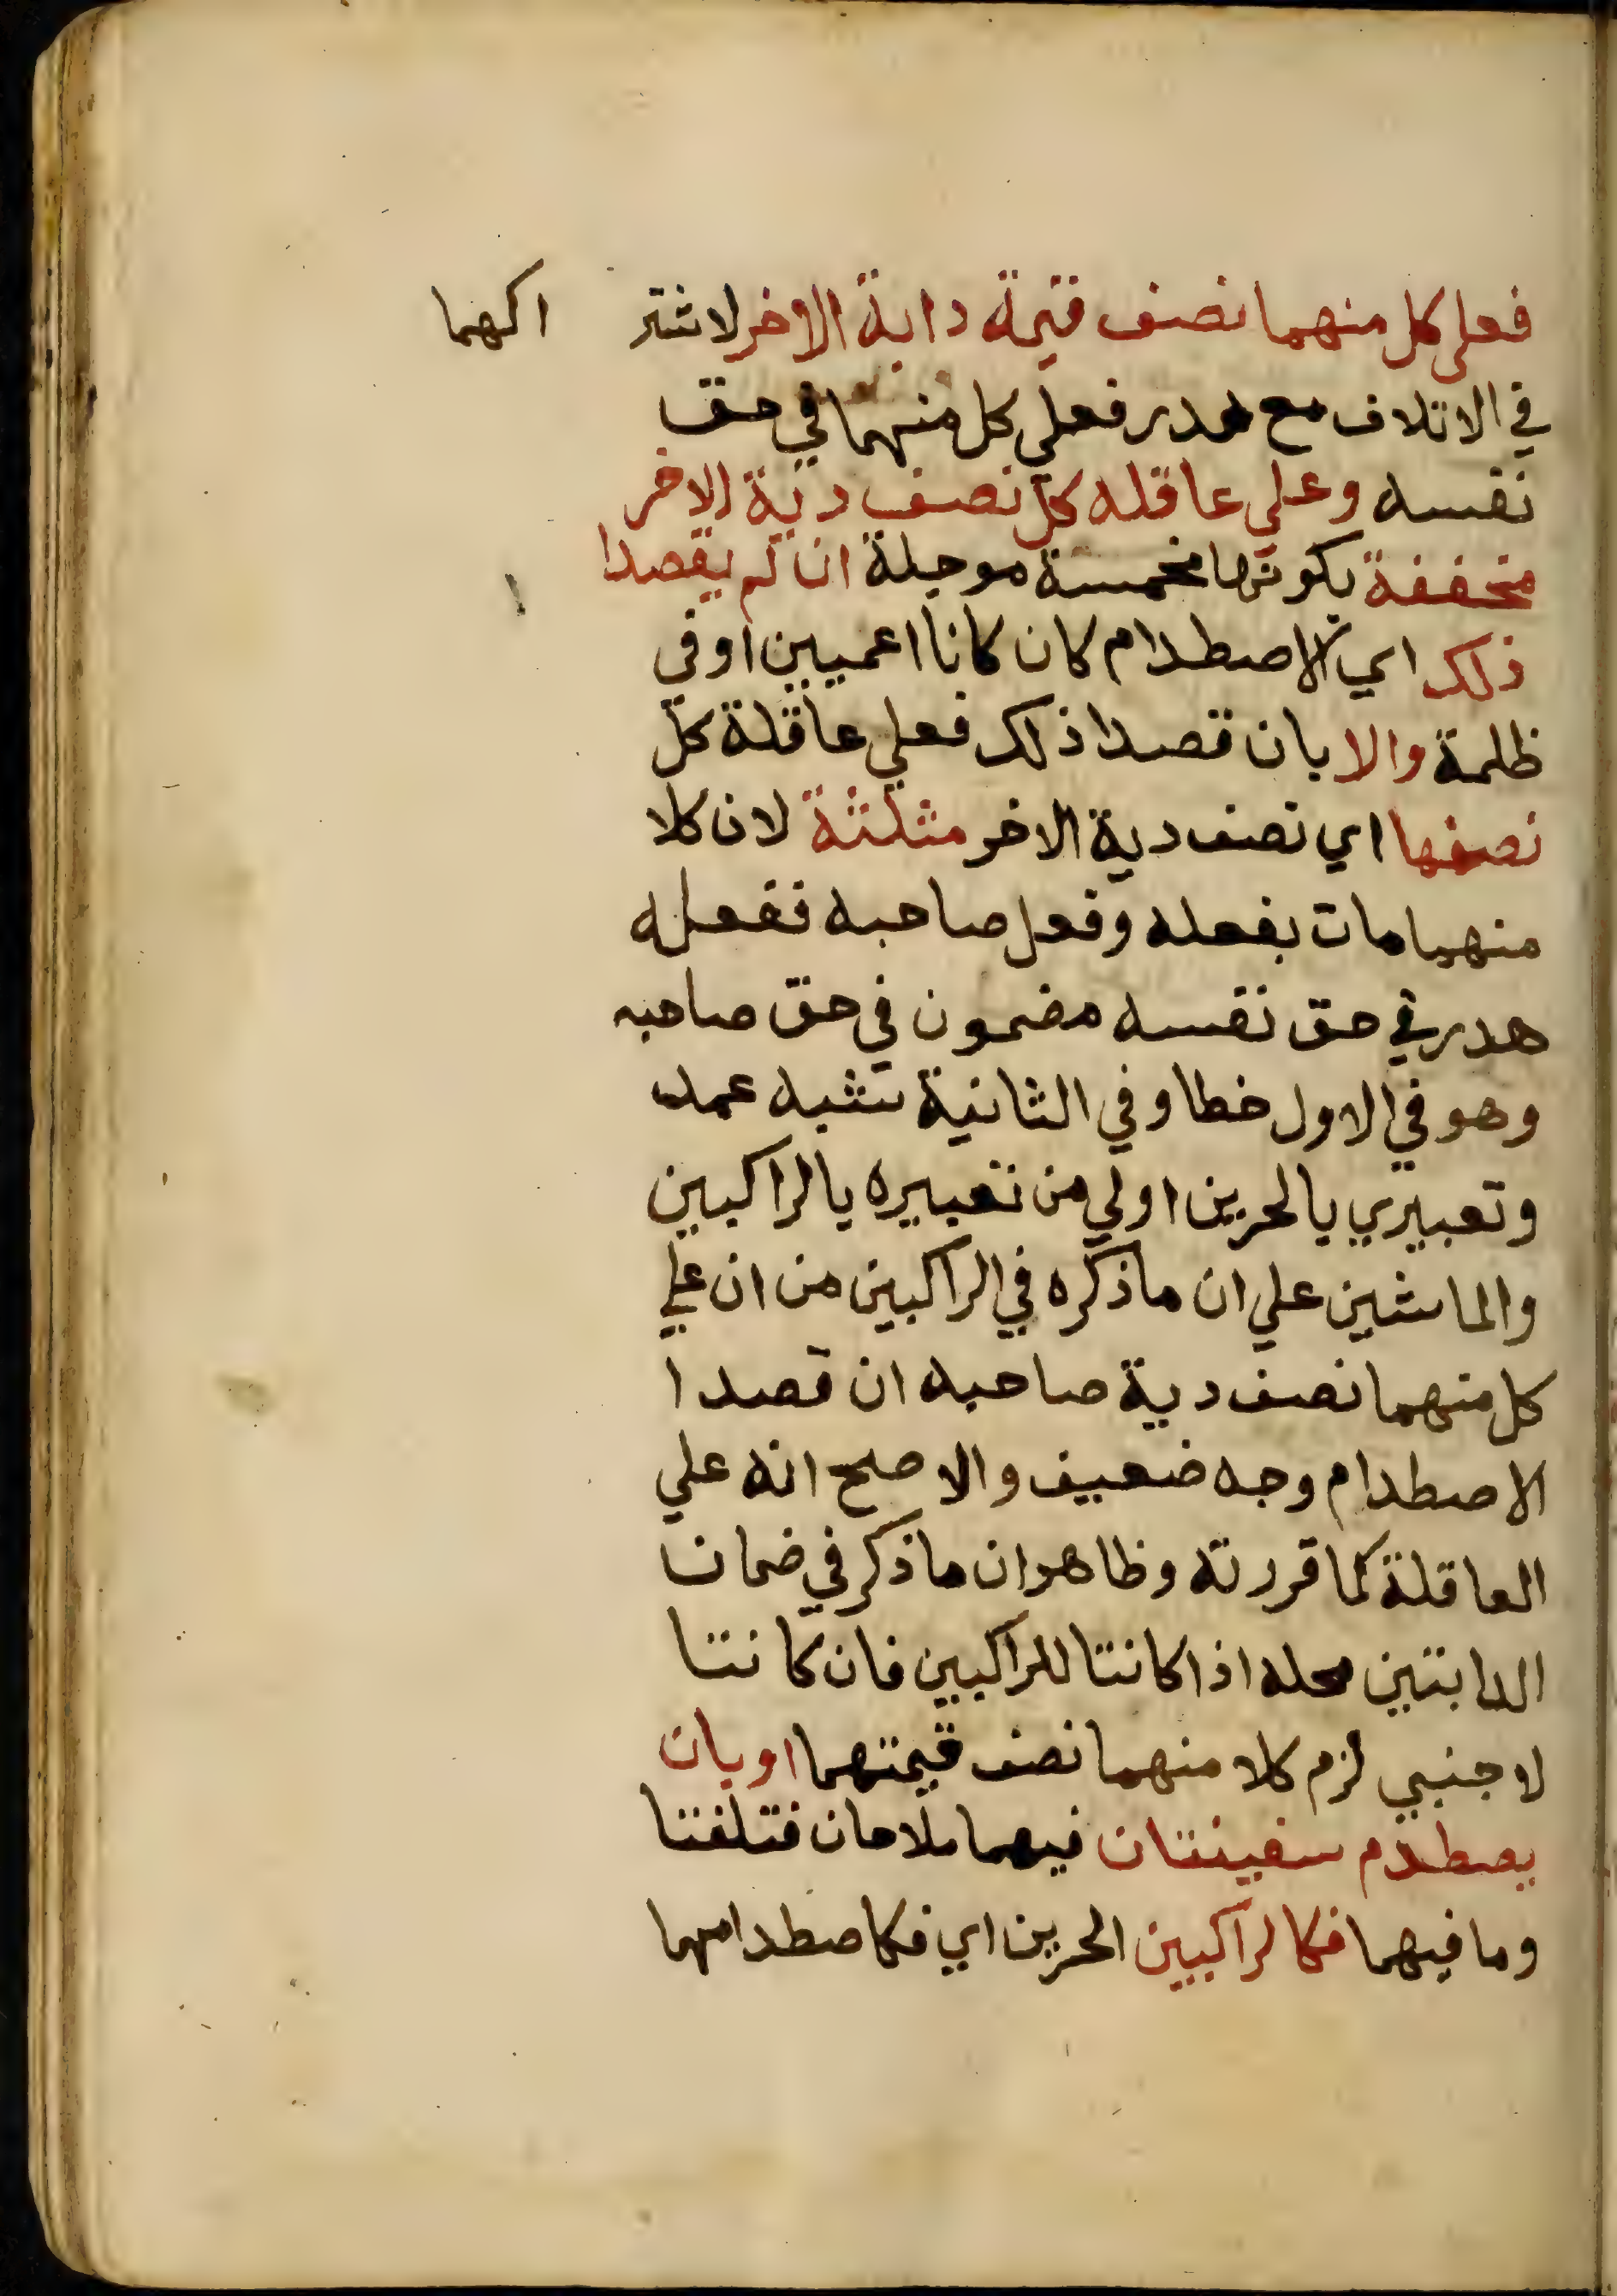 فعلي كل منهما نصف قيمة دابة الاخر لاشتر اكهما
في الاتلاف مع هدر فعلي كل منهما في حق
نفسه وعلي عاقله كل نصف دية الاخر
مخففة بكونها مخمسة موجلة ان لم يقصدا
ذلك اي الاصطدام كان كانا اعميين او في
ظلمة والا بان قصدا ذلك فعلي عاقلة كل
نصفها اي نصف دية الاخر مثلثة لان كلا
منهما مات بفعله وفعل صاحبه ففعله
هدر في حق نفسه مضمون في حق صاحبه
وهو في الاول خطا وفي الثانية شبه عمد
وتعبيري بالحرين اولي من تعبيره بالراكبين
والماشين علي ان ما ذكره في الراكبين من ان علي
كل منهما نصف دية صاحبه ان قصدا
الاصطدام وجه ضعيف والاصح انه علي
العاقلة كما قررته وظاهر ان ما ذكر في ضمان
الدابتين محله اذا كانتا للراكبين فان كانتا
لاجنبي لزم كلا منهما نصف قيمتهما او بان
يصطدم سفينتان فيهما ملاحان فتلفتا
وما فيهما فكالراكبين الحرين اي فكاصطدامهما